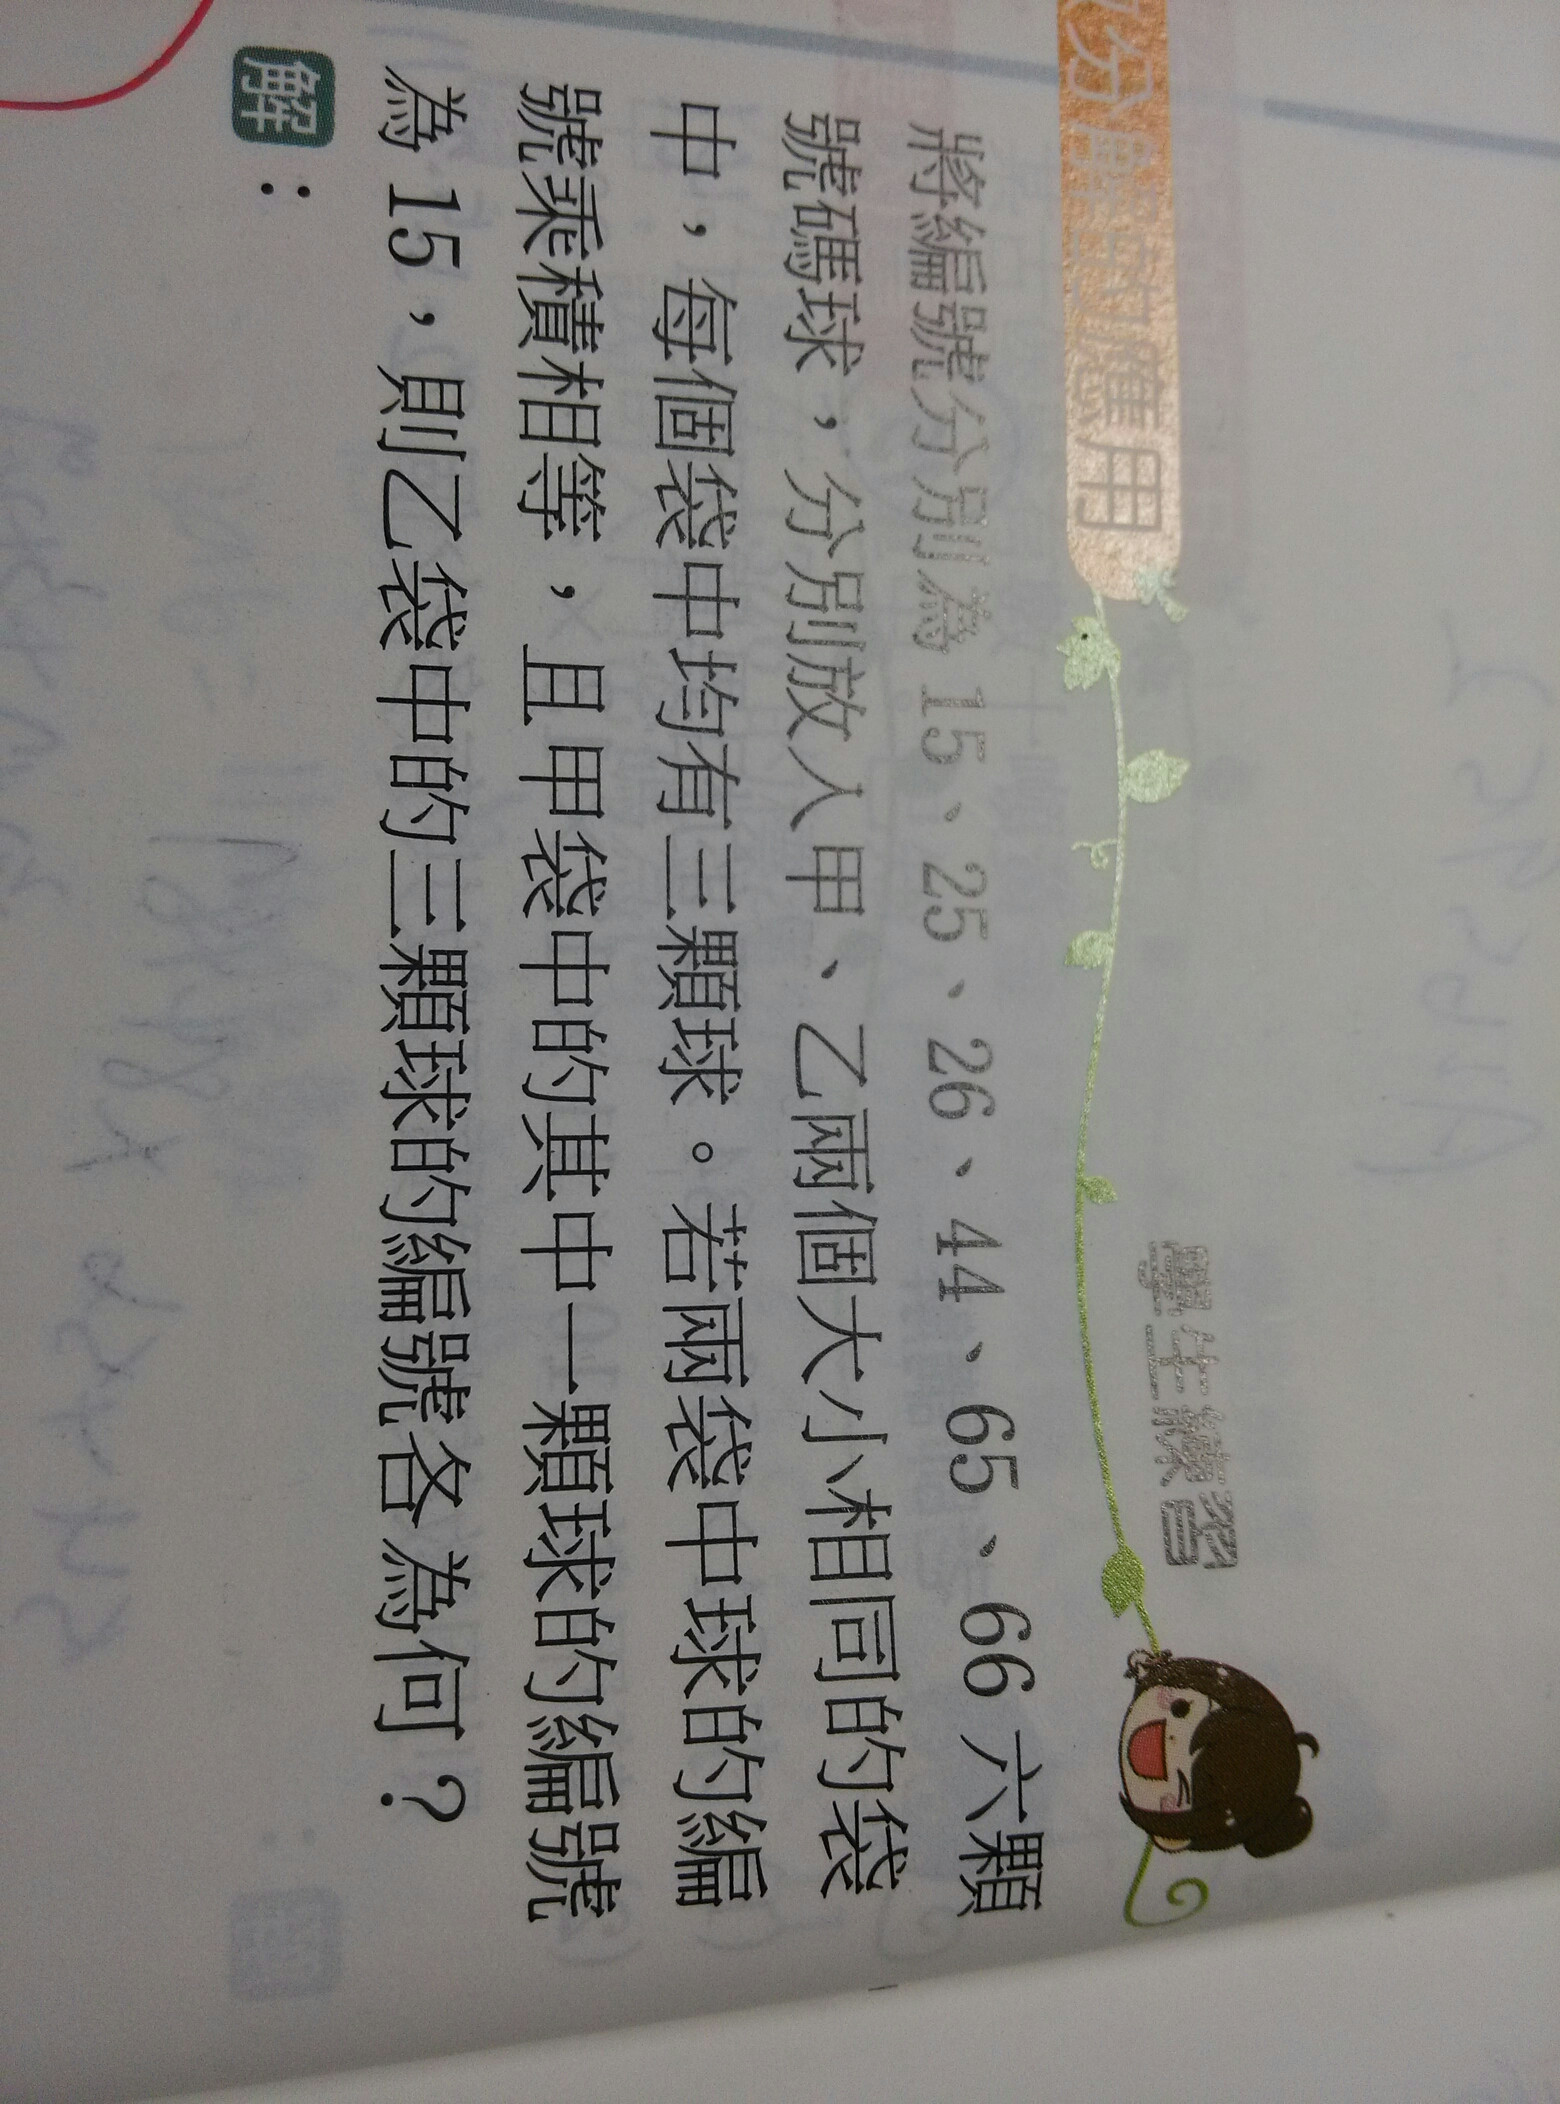 分解的應用
學生練習
將編號分別為 15、25、26、44、65、66 六顆
號碼球，分別放入甲、乙兩個大小相同的袋
中，每個袋中均有三顆球。若兩袋中球的編
號乘積相等，且甲袋中的其中一顆球的編號
為 15，則乙袋中的三顆球的編號各為何？
解：